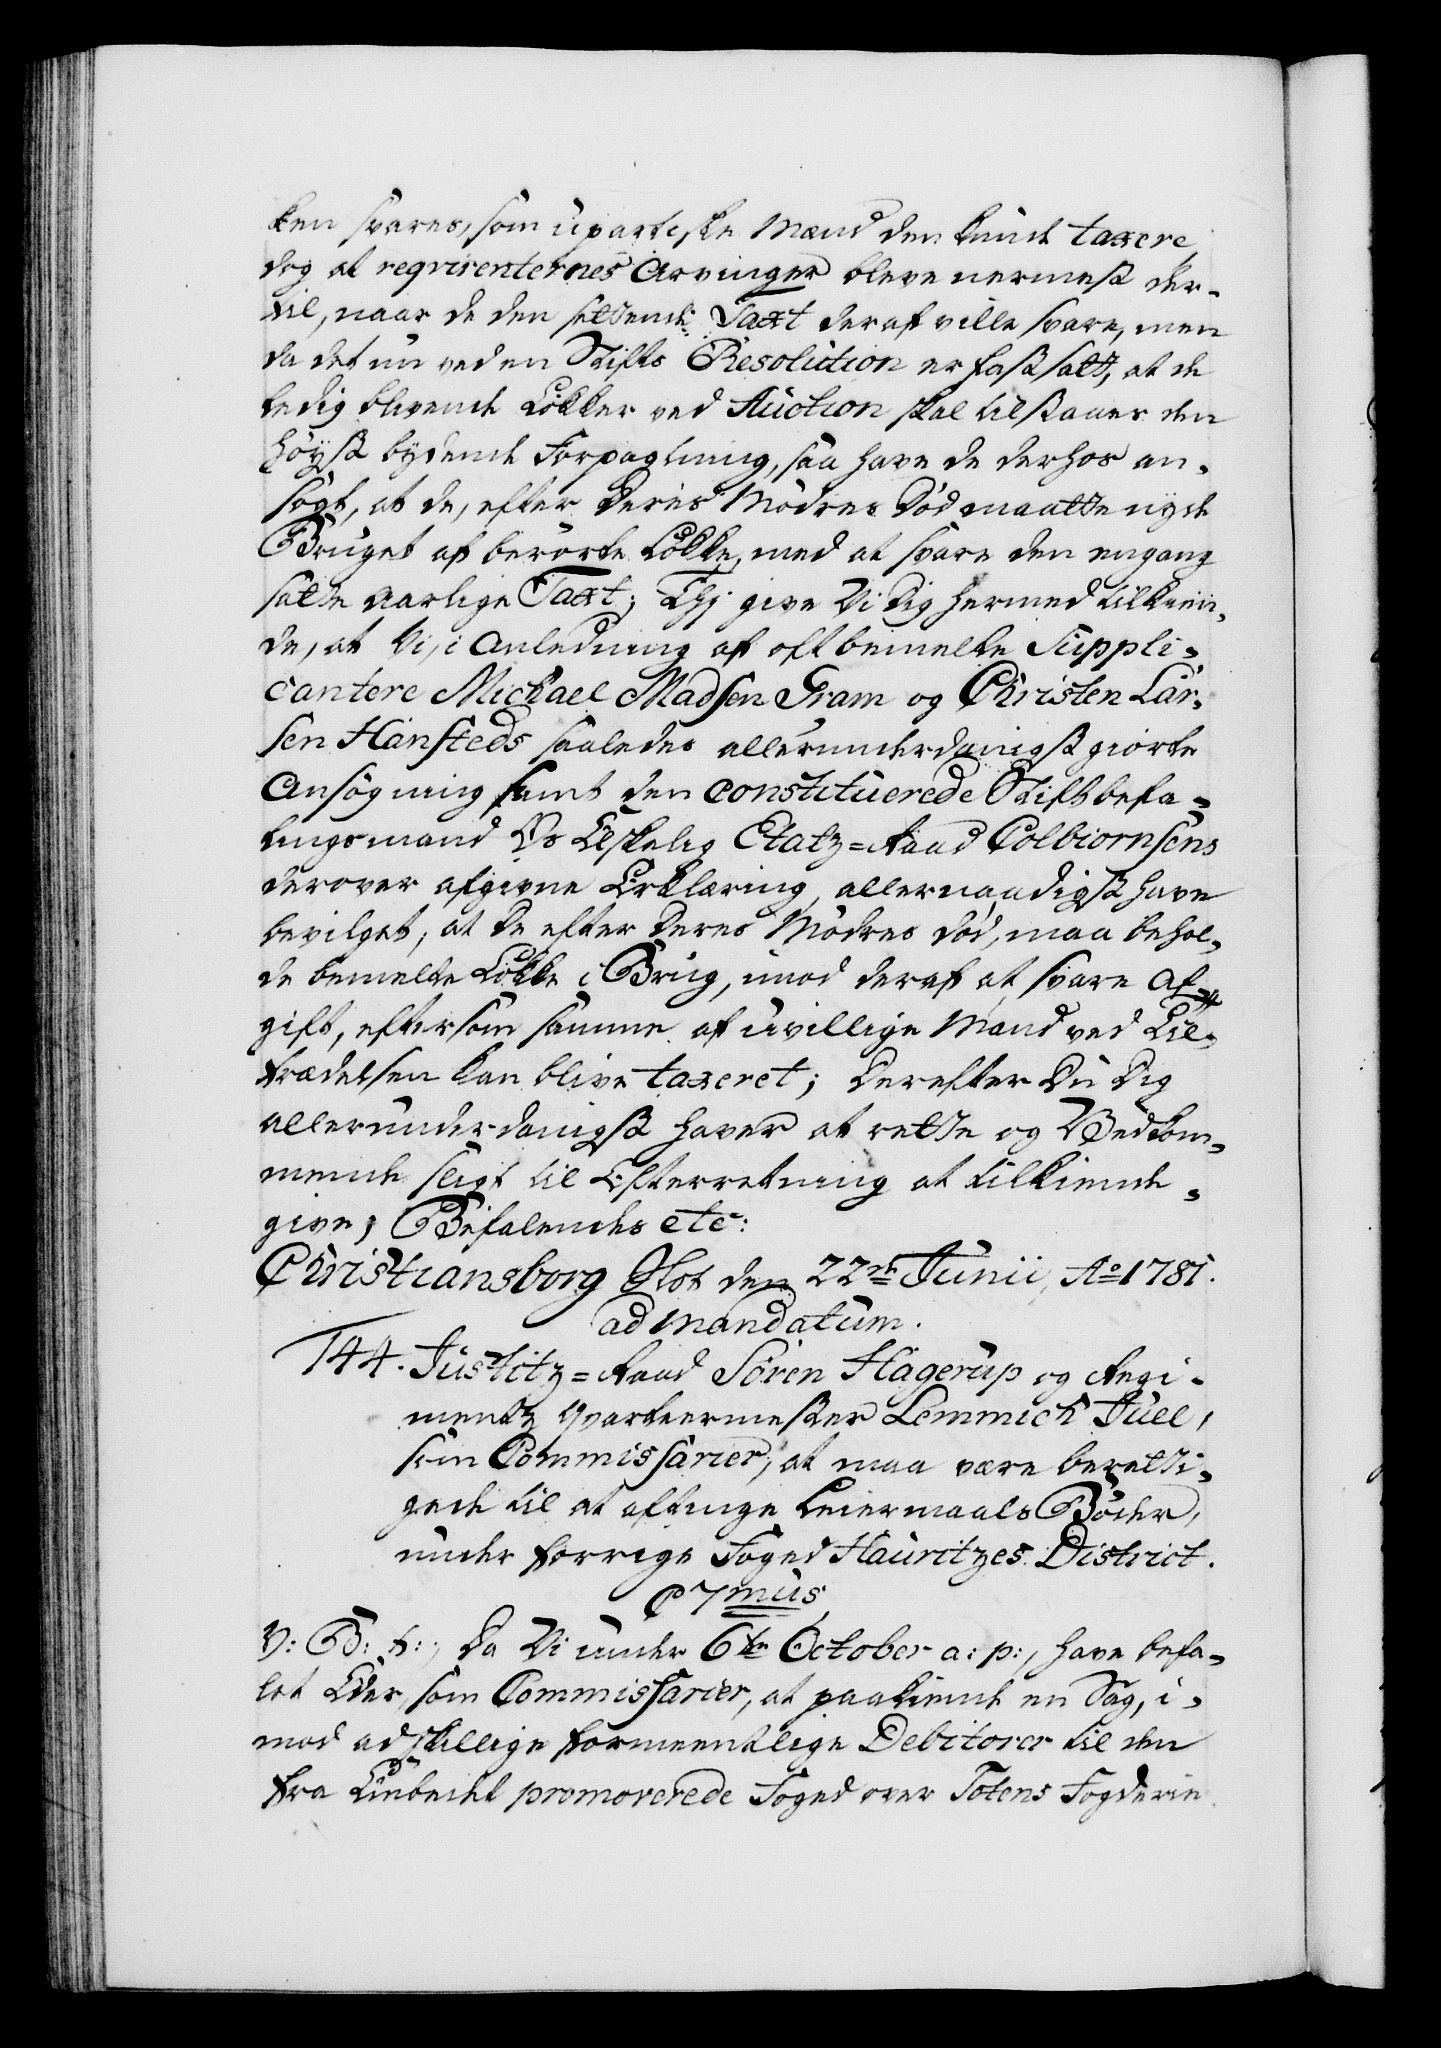 ken svares, som upartiske Mænd den kunde taxere,
dog at reqvirenternes Arvinger bleve nermest der-
til, naar de den settende Taxt deraf ville svare, men
da det nu ved en Stifts Resolution er fastsatt, at de
ledig blivende Løkker ved Auction skal tilstaaes den
høyst bydende Forpagtning, saa have de derhos an-
søgt, at de, efter deres Mødres Død maatte nyde
Bruget af berørte Løkke, med at svare den engang
satte aarlige Taxt; Thj give Vi Dig hermed tilkien-
de, at Vi, i Anledning af oftbemelte Suppli-
cantere Michael Madsen Gram og Christen Lar-
sen Hansteds saaledes allerunderdanigst giorte
Ansøgning samt den constituerede Stiftbefa-
lingsmand Os Elskelig Etatz-Raad Colbiornsens
derover afgivne Erklæring, allernaadigst have
bevilget, at de efter deres Mødres Død, maa behol-
de bemelte Løkke i Brug, imod deraf at svare Af-
gift, eftersom samme af uvillige Mænd ved Til-
trædelsen kan blive taxeret; Derefter Du Dig
allerunderdanigst haver at rette og Vedkom-
mende sligt til Efterretning at tilkiende-
give; Befalendes etc:
Christiansborg Slot den 22de Junii, Ao 1781.
ad mandatum.
144. Justitz-Raad Sören Hagerup og Regi-
mentz Qvarteermester Lemmich Juel,
som Commissarier, at maa være beretti-
gede til at aftinge Leiermaals Bøder,
under forrige Foged Hauritzes District.
C 7mus
V: G: t:, Da Vi under 6te October a: p:, have befa-
let Eder, som Commissarier, at paakiende en Sag, i-
mod adskillige formeentlige Debitorer til den
fra Embedet promoverede Foged over Totens Fogderie